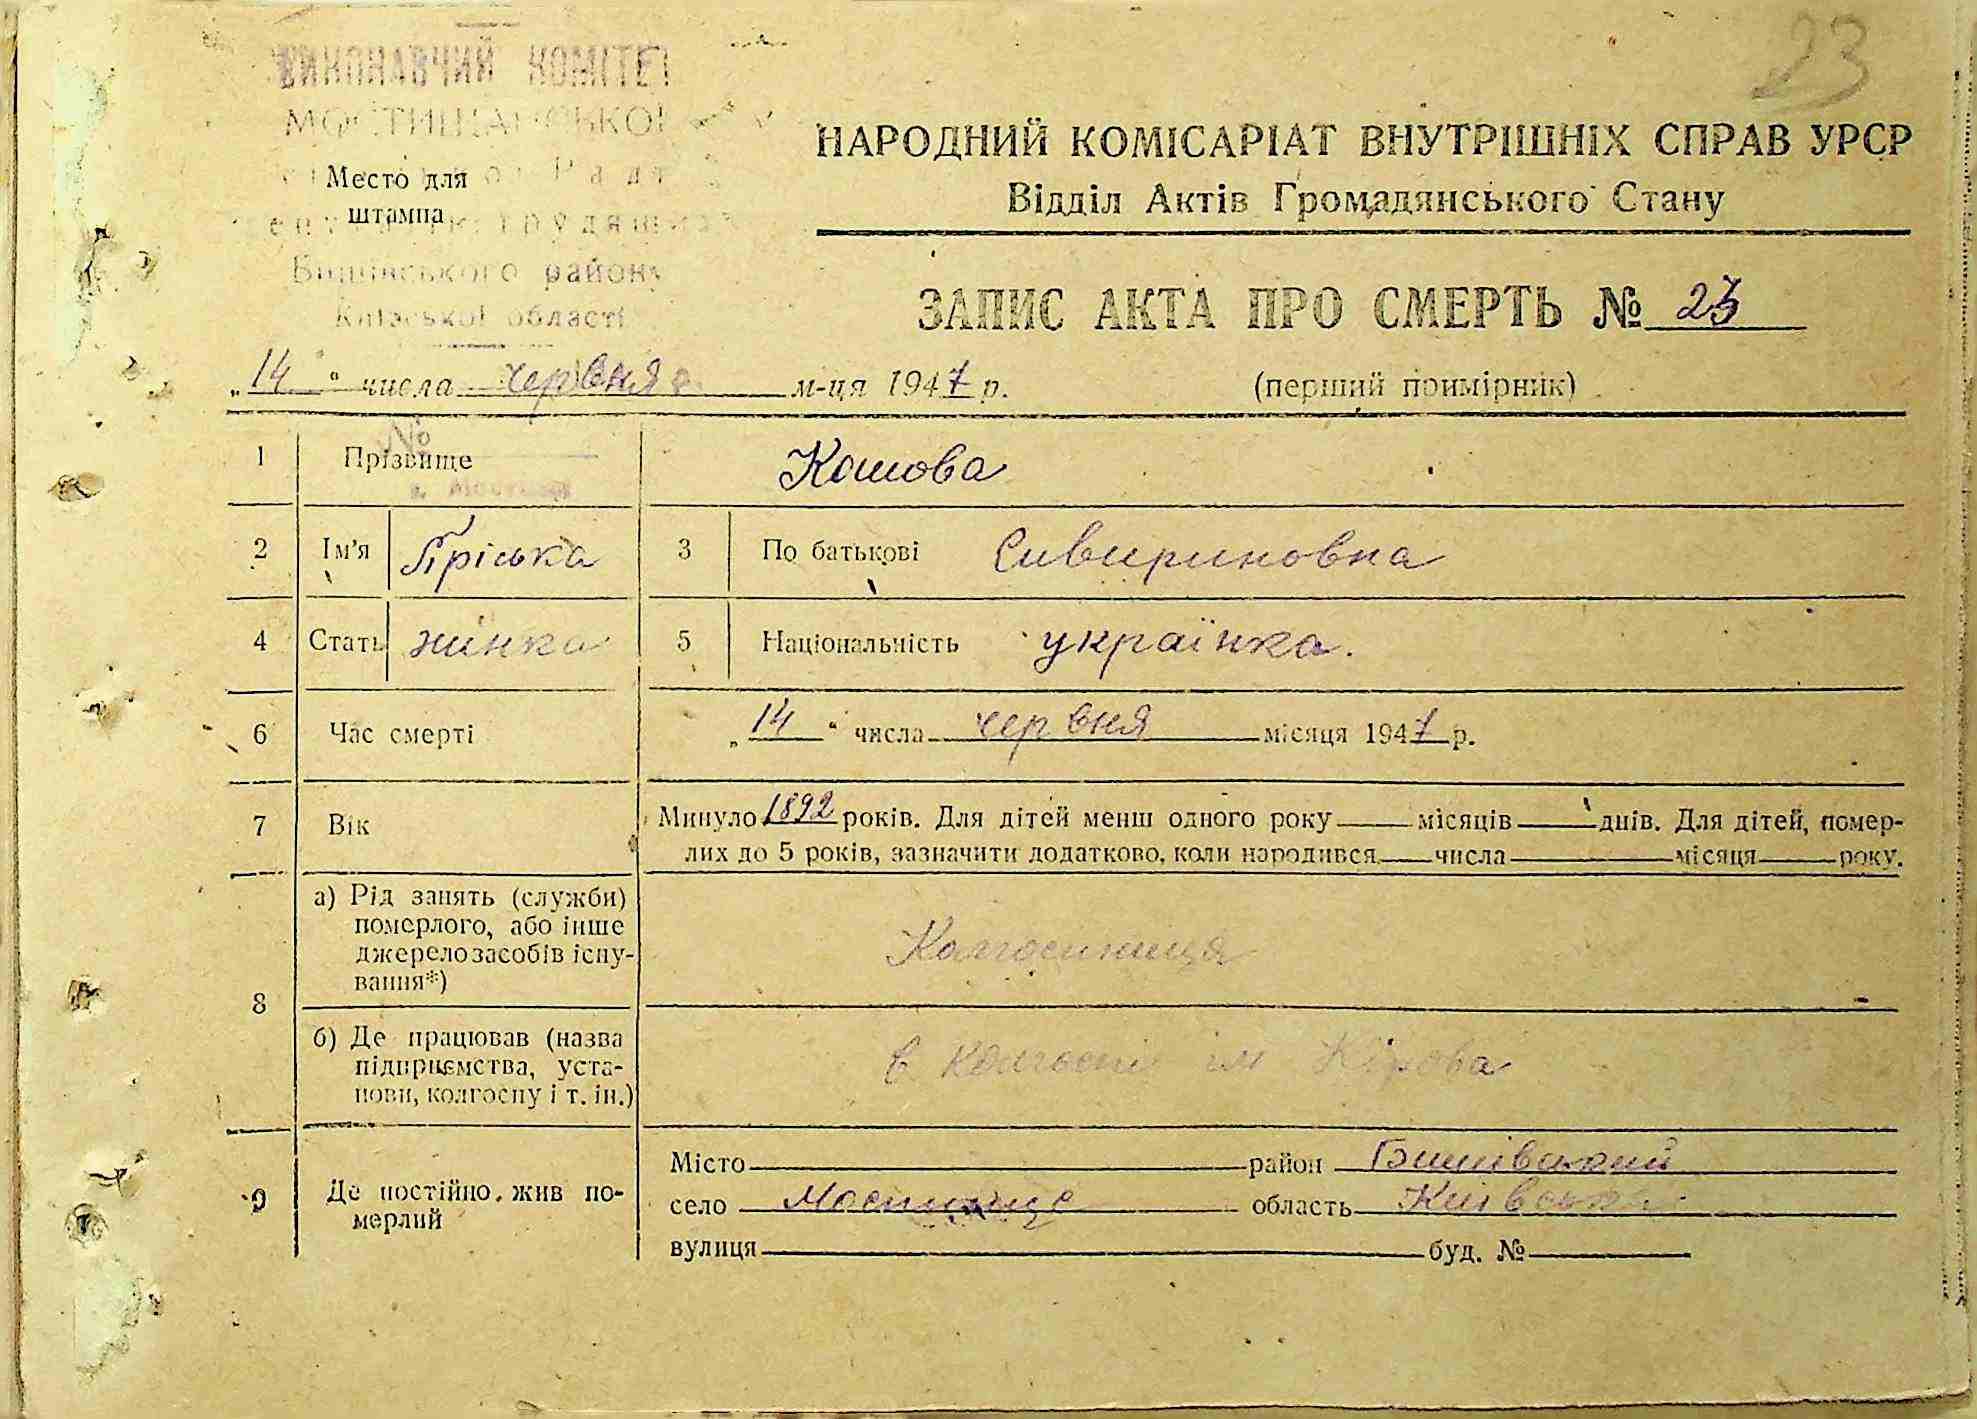 23
ВИКОНАВЧИЙ КОМІТЕТ
МОСТИЩАНСЬКОЇ
НАРОДНИЙ КОМІСАРІАТ ВНУТРІШНІХ СПРАВ УРСР
Место для
штампа
Відділ Актів Громадянського Стану
району
Київської області
ЗАПИС АКТА ПРО СМЕРТЬ № 23
„14“ числа червня м-ця 1947 р. (перший примірник)
№
1 Прізвище Кашова
2 Ім'я Пріська 3 По батькові Сивириновна
4 Стать жінка 5 Національність українка.
6 Час смерті „14“ числа червня місяця 1947 р.
7 Вік Минуло 1892 років. Для дітей менш одного року місяців днів. Для дітей, помер-
лих до 5 років, зазначити додатково, коли народився числа місяця року.
8 а) Рід занять (служби)
померлого, або інше
джерело засобів існу-
вання*) Колгоспниця
б) Де працював (назва
підприємства, уста-
нови, колгоспу і т. ін.) в колгоспі ім Кірова
9 Де постійно жив по-
мерлий
Місто район Бишівський
село Мостище область Київська
вулиця буд. №